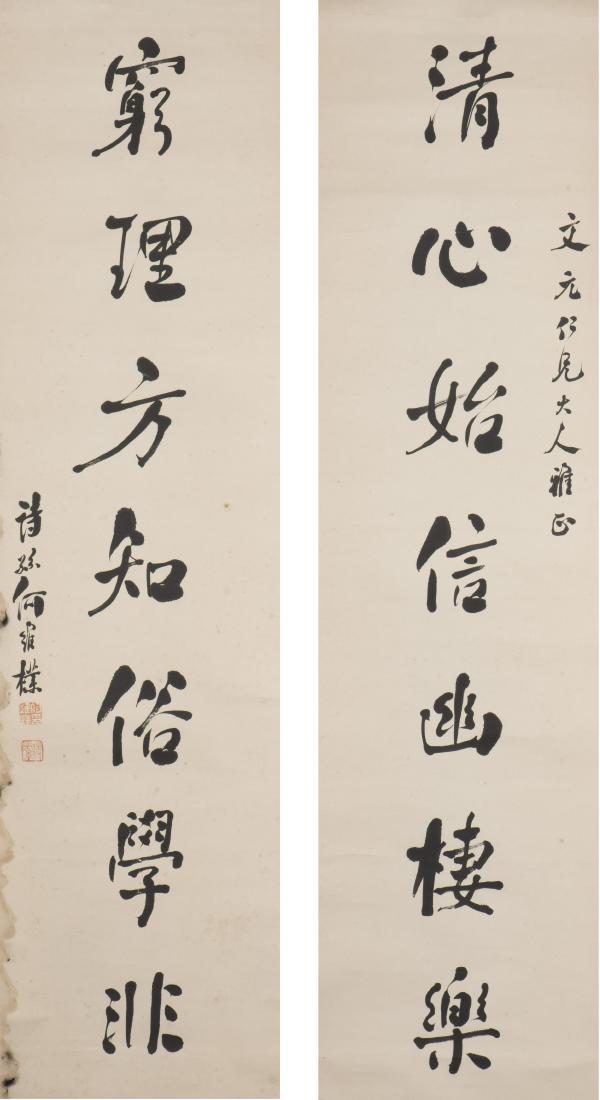 文元仁兄大人雅正
清心始信幽棲樂
窮理方知俗學非
詩孫何維樸